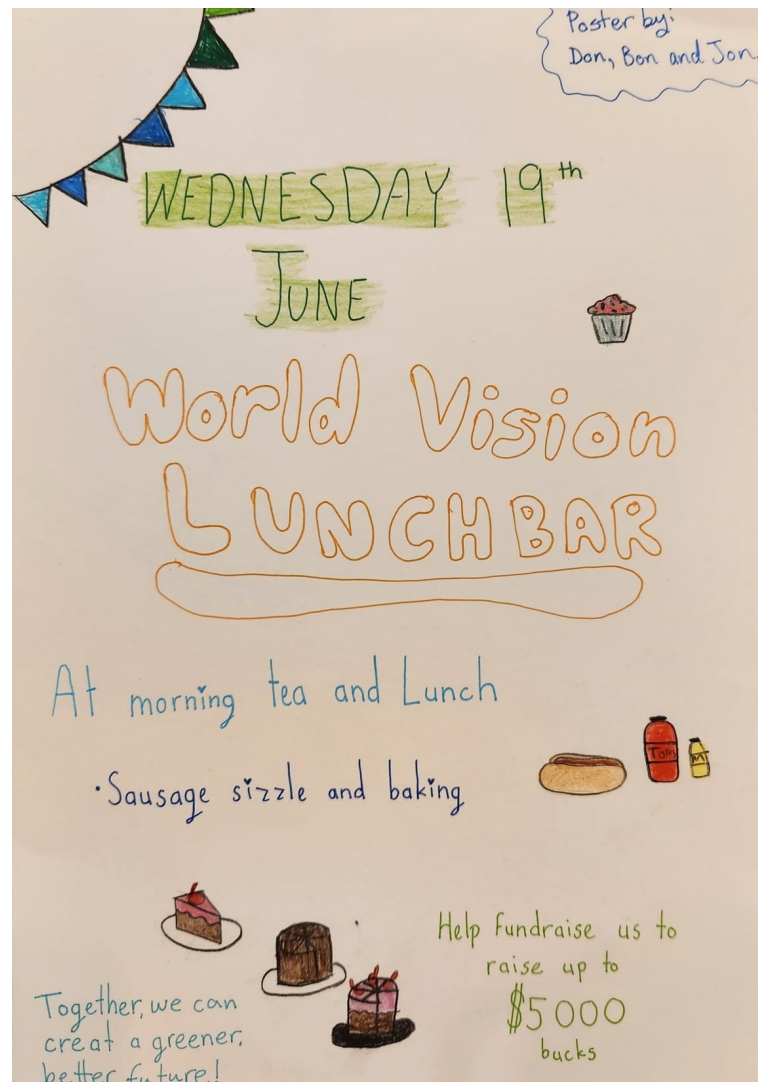 Poster by:
Don, Bon and Jon.
WEDNESDAY 19th
JUNE
World Vision
LUNCHBAR
At morning tea and Lunch
·Sausage sizzle and baking
Tom
MT
Help fundraise us to
raise up to
$5000
bucks
Together, we can
creat a greener,
better future!